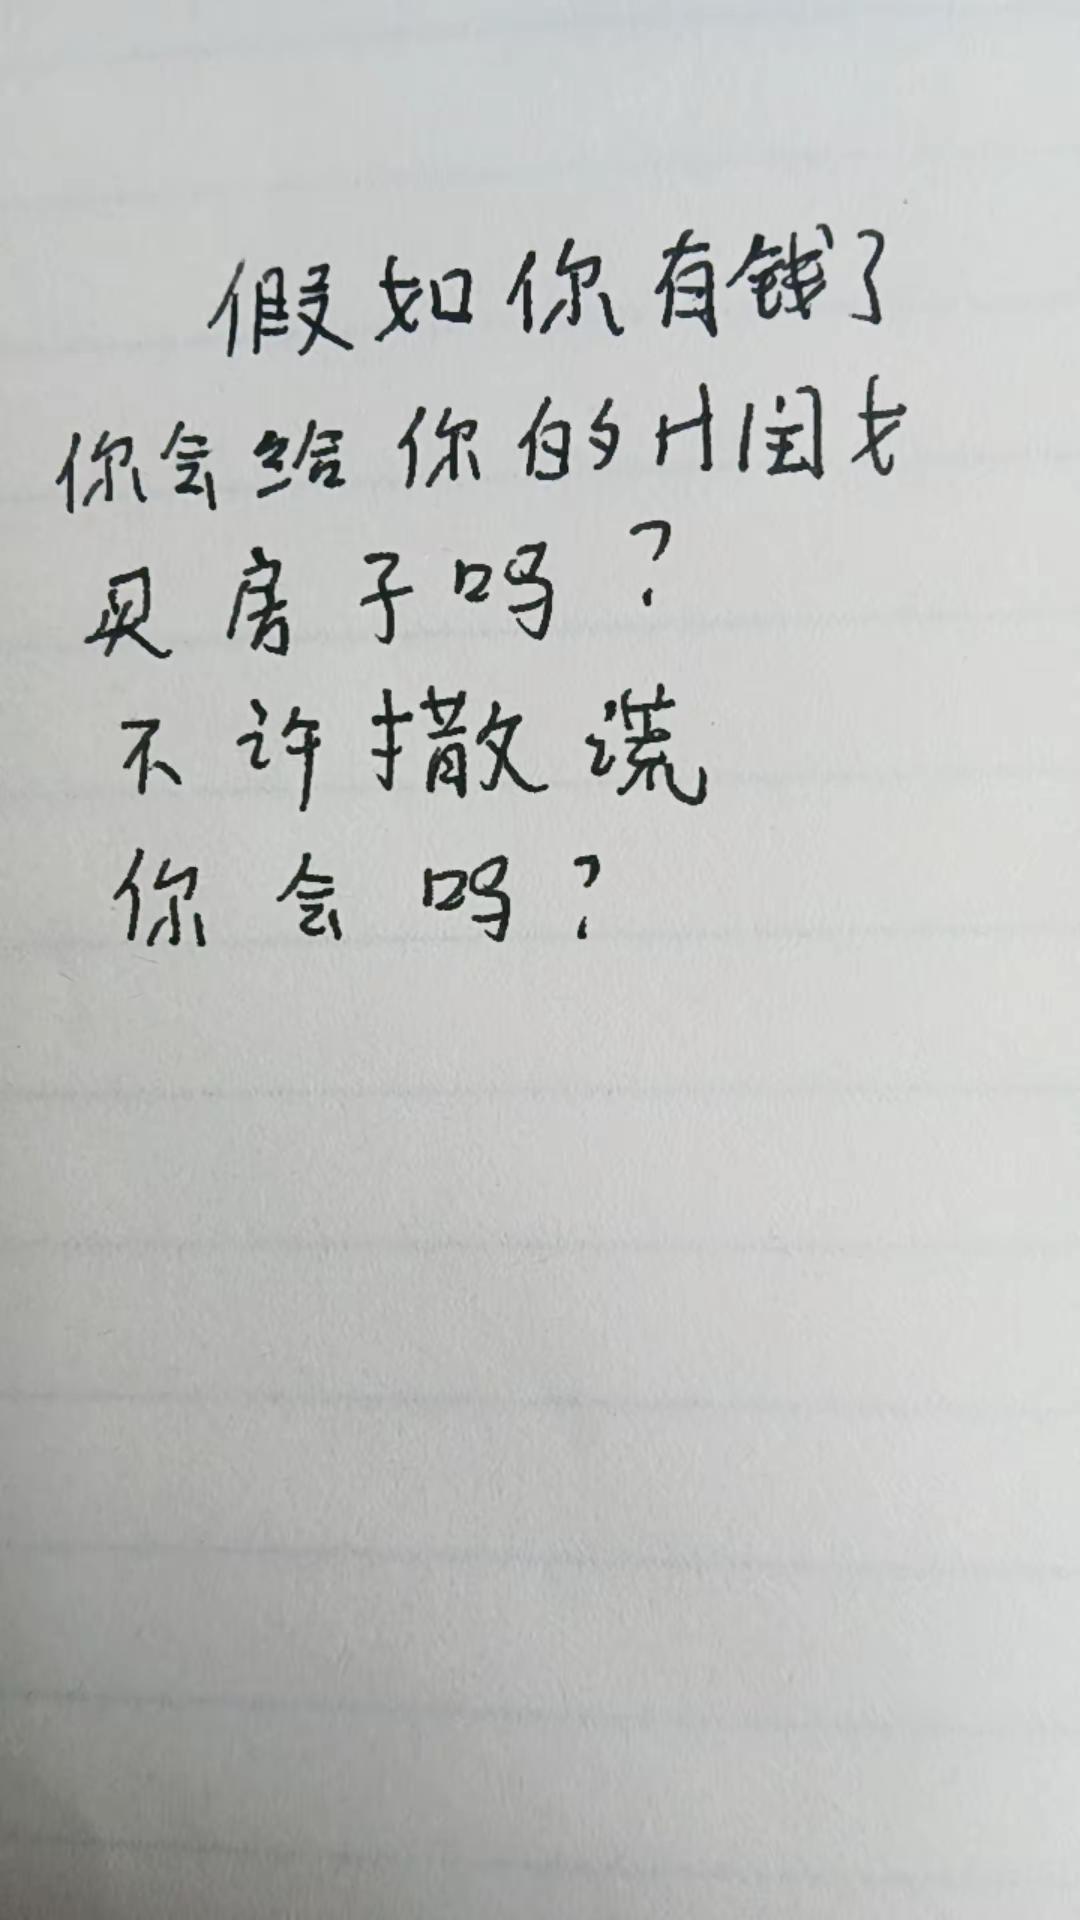 假如你有钱了
你会给你的H闺
买房子吗?
不许撒谎
你会吗?